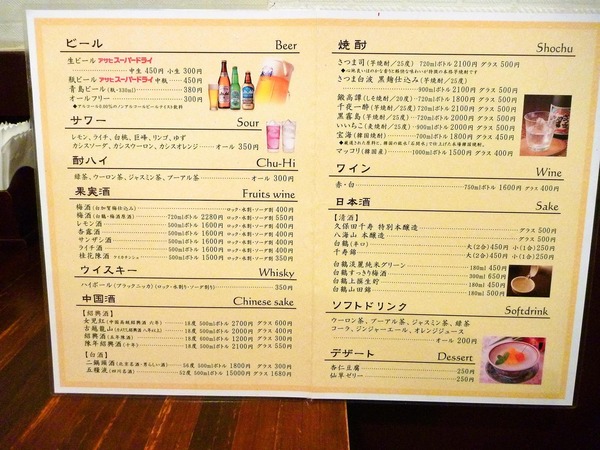 ビール Beer
生ビール アサヒスーパードライ
中生 450円 小生 300円
瓶ビール アサヒスーパードライ 中瓶 450円
青島ビール(瓶・330ml) 380円
オールフリー 300円
サワー Sour
レモン、ライチ、白桃、巨峰、リンゴ、ゆず
カシスソーダ、カシスウーロン、カシスオレンジ オール 350円
酎ハイ Chu-Hi
緑茶、ウーロン茶、ジャスミン茶、プーアル茶 オール 300円
果実酒 Fruits wine
梅酒 ロック・水割・ソーダ割 400円
梅酒(白鶴・梅酒原酒) 720mlボトル 2280円 ロック・水割・ソーダ割 550円
レモン酒 500mlボトル 1600円 ロック・水割・ソーダ割 400円
杏露酒 500mlボトル 1600円 ロック・水割・ソーダ割 400円
サンザシ酒 500mlボトル 1600円 ロック・水割・ソーダ割 400円
ライチ酒 500mlボトル 1600円 ロック・水割・ソーダ割 400円
桂花陳酒 500mlボトル 1600円 ロック・水割・ソーダ割 350円
ウイスキー Whisky
ハイボール(ブラックニッカ)(ロック・水割り・ソーダ割り) 350円
中国酒 Chinese sake
【紹興酒】
女児紅 18度 500mlボトル 2700円 グラス 600円
古越龍山 18度 500mlボトル 2000円 グラス 400円
紹興酒 18度 600mlボトル 1200円 グラス 300円
陳年紹興酒(十年) 18度 500mlボトル 2100円 グラス 550円
【白酒】
二鍋頭酒 56度 500mlボトル 1800円 グラス 300円
五糧液(四川名酒) 52度 500mlボトル 15000円 グラス 1680円
焼酎 Shochu
さつま司(芋焼酎/25度) 720mlボトル 2100円 グラス 500円
さつま白波 黒麹仕込み(芋焼酎/25度)
900mlボトル 2100円 グラス 500円
鍛高譚(しそ焼酎/20度) 720mlボトル 1800円 グラス 500円
千夜一酔(芋焼酎/25度) 900mlボトル 2100円 グラス 500円
黒霧島(芋焼酎/25度) 900mlボトル 2000円 グラス 500円
いいちこ(麦焼酎/25度) 900mlボトル 2000円 グラス 500円
宝海(韓国焼酎) 700mlボトル 1800円 グラス 450円
マッコリ(韓国産) 1000mlボトル 1500円 グラス 400円
ワイン Wine
赤・白 750mlボトル 1600円 グラス 400円
日本酒 Sake
【清酒】
久保田千寿 特別本醸造 グラス 500円
八海山 本醸造 グラス 500円
白鶴(辛口) 大(2合)450円 小(1合)250円
千寿錦 大(2合)450円 小(1合)250円
白鶴淡麗純米グリーン 180ml 450円
白鶴すっきり梅酒 300ml 650円
白鶴上撰生貯 180ml 450円
白鶴山田錦 180ml 500円
ソフトドリンク Softdrink
ウーロン茶、プーアル茶、ジャスミン茶、緑茶
コーラ、ジンジャーエール、オレンジジュース
オール 200円
デザート Dessert
杏仁豆腐 250円
仙草ゼリー 250円